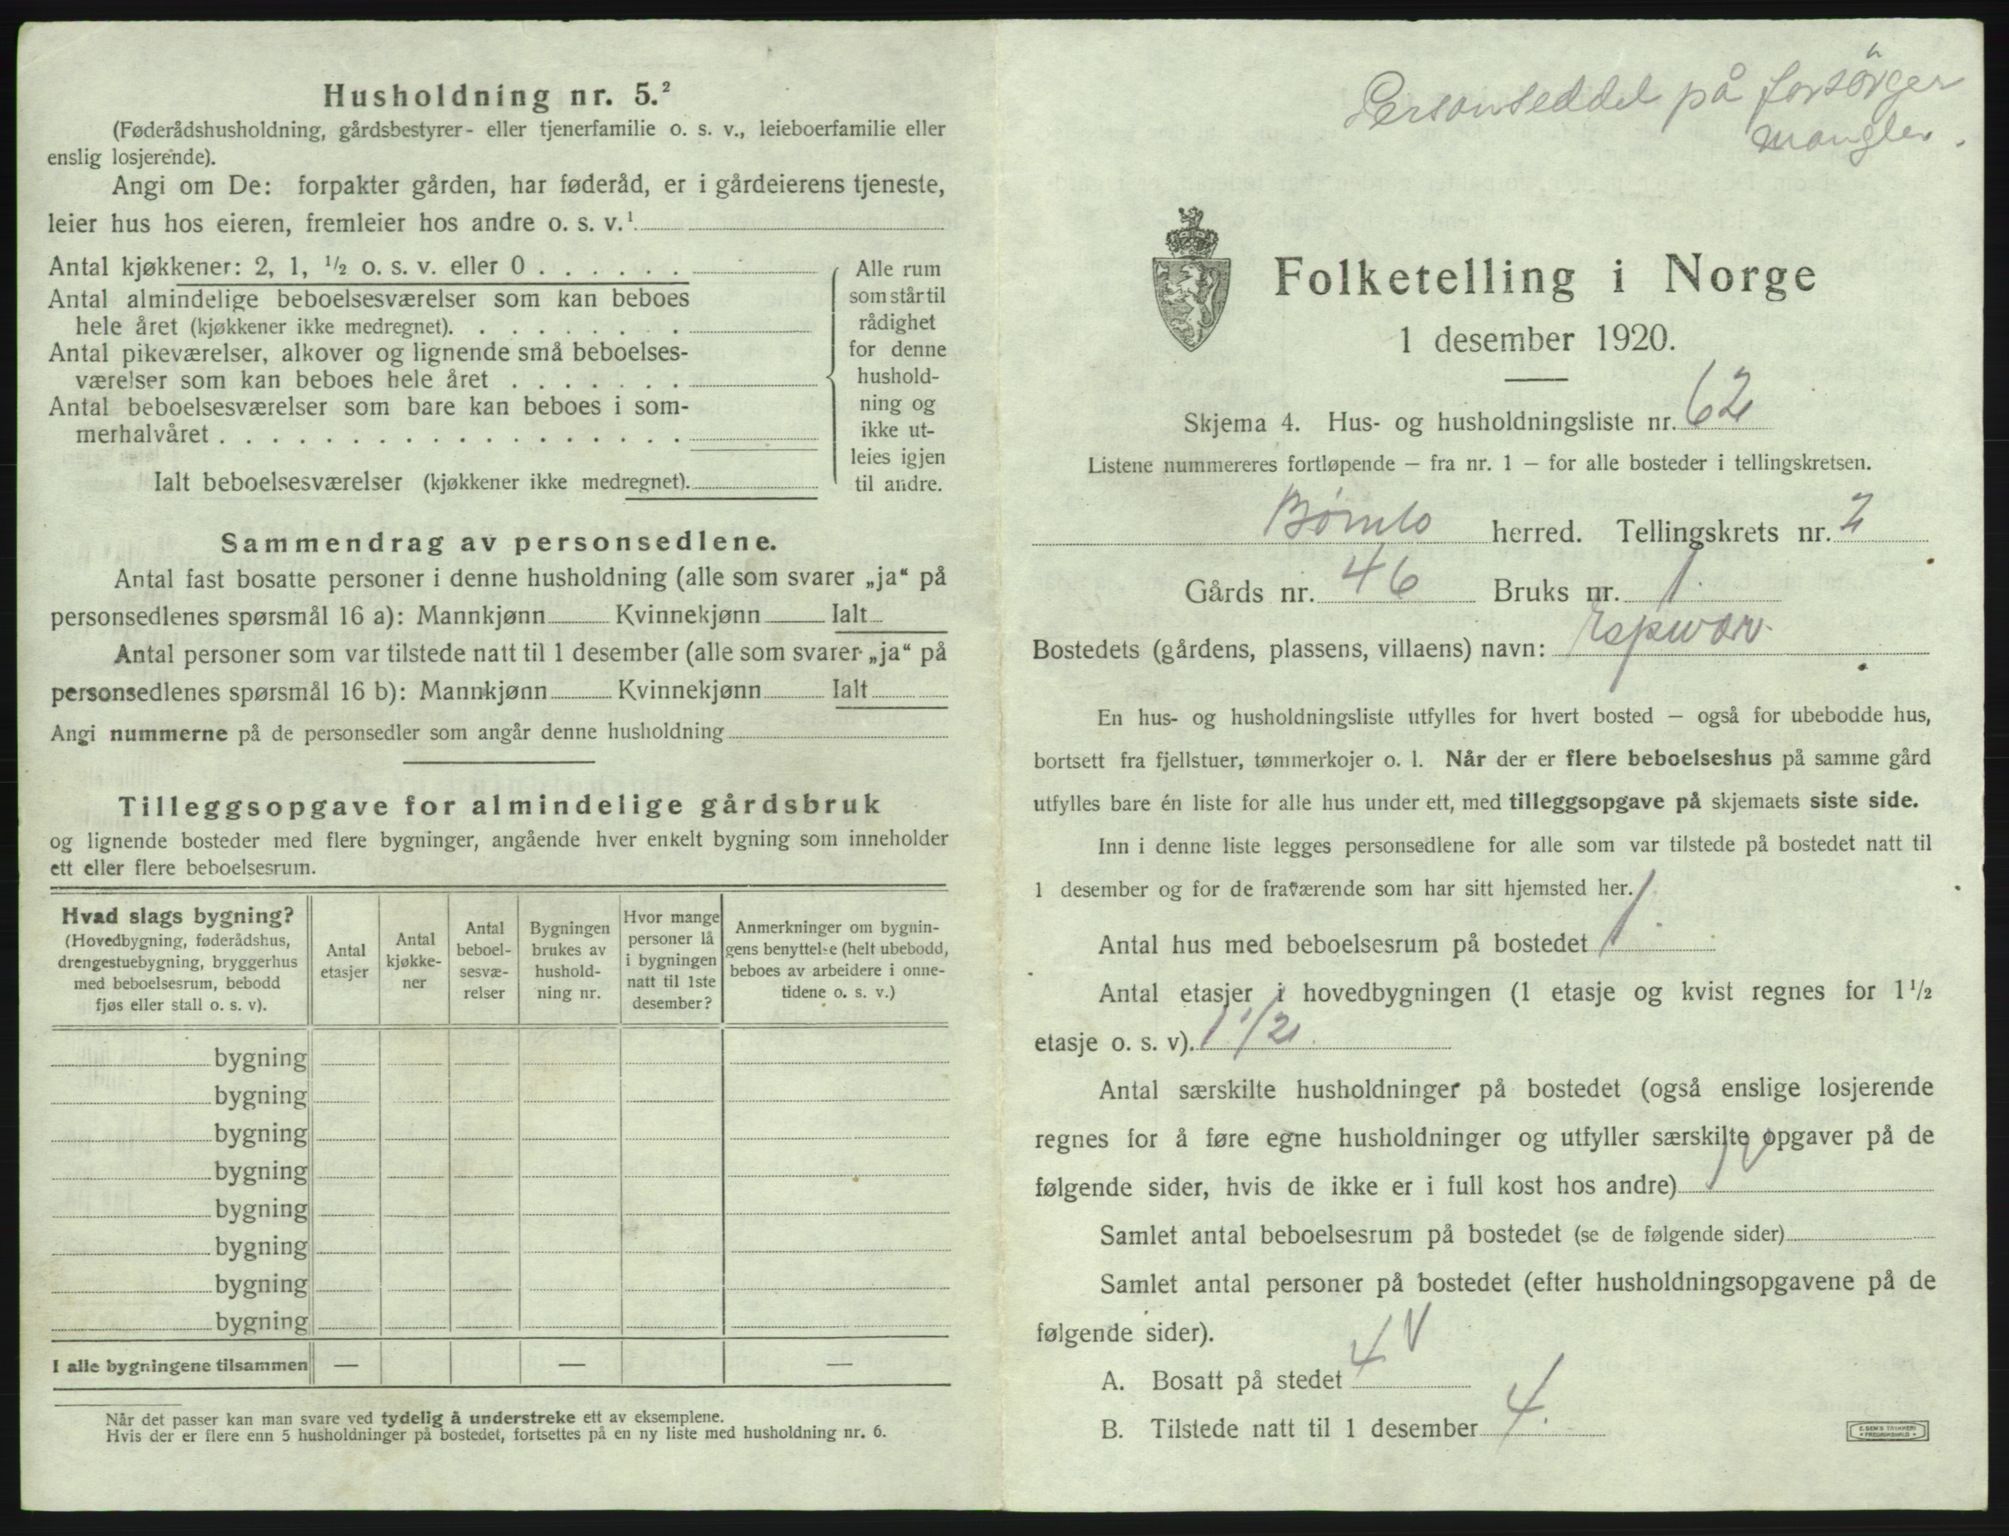 Husholdning nr. 5.²
(Føderådshusholdning, gårdsbestyrer- eller tjenerfamilie o. s. v., leieboerfamilie eller
enslig losjerende).
Angi om De: forpakter gården, har føderåd, er i gårdeierens tjeneste,
leier hus hos eieren, fremleier hos andre o. s. v.¹
Antal kjøkkener: 2, 1, ½ o. s. v. eller 0 . . . . . .
Antal almindelige beboelsesværelser som kan beboes
hele året (kjøkkener ikke medregnet). . . . . . . . .
Antal pikeværelser, alkover og lignende små beboelses-
værelser som kan beboes hele året . . . . . . .
Antal beboelsesværelser som bare kan beboes i som-
merhalvåret . . . . . . . . . . . . . . . . . .
Ialt beboelsesværelser (kjøkkener ikke medregnet).
Alle rum
som står til
rådighet
for denne
hushold-
ning og
ikke ut-
leies igjen
til andre.
Sammendrag av personsedlene.
Antal fast bosatte personer i denne husholdning (alle som svarer „ja“ på
personsedlenes spørsmål 16 a): Mannkjønn Kvinnekjønn Ialt
Antal personer som var tilstede natt til 1 desember (alle som svarer „ja“ på
personsedlenes spørsmål 16 b): Mannkjønn Kvinnekjønn Ialt
Angi nummerne på de personsedler som angår denne husholdning
Tilleggsopgave for almindelige gårdsbruk
og lignende bosteder med flere bygninger, angående hver enkelt bygning som inneholder
ett eller flere beboelsesrum.
Hvad slags bygning?
(Hovedbygning, føderådshus,
drengestuebygning, bryggerhus
med beboelsesrum, bebodd
fjøs eller stall o. s. v).
Antal
etasjer
Antal
kjøkke-
ner
Antal
beboel-
sesvæ-
relser
Bygningen
brukes av
hushold-
ning nr.
Hvor mange
personer lå
i bygningen
natt til 1ste
desember?
Anmerkninger om bygnin-
gens benyttelse (helt ubebodd,
beboes av arbeidere i onne-
tidene o. s. v.)
bygning
bygning
bygning
bygning
bygning
bygning
bygning
bygning
I alle bygningene tilsammen — — —
Når det passer kan man svare ved tydelig å understreke ett av eksemplene.
Hvis der er flere enn 5 husholdninger på bostedet, fortsettes på en ny liste med husholdning nr. 6.
Personseddel på forsörger
mangler.
Folketelling i Norge
1 desember 1920.
Skjema 4. Hus- og husholdningsliste nr. 62
Listene nummereres fortløpende — fra nr. 1 — for alle bosteder i tellingskretsen.
Bømlo herred. Tellingskrets nr. 2
Gårds nr. 46 Bruks nr. 1.
Bostedets (gårdens, plassens, villaens) navn: Espevær
En hus- og husholdningsliste utfylles for hvert bosted — også for ubebodde hus,
bortsett fra fjellstuer, tømmerkojer o. l. Når der er flere beboelseshus på samme gård
utfylles bare én liste for alle hus under ett, med tilleggsopgave på skjemaets siste side.
Inn i denne liste legges personsedlene for alle som var tilstede på bostedet natt til
1 desember og for de fraværende som har sitt hjemsted her.
Antal hus med beboelsesrum på bostedet 1.
Antal etasjer i hovedbygningen (1 etasje og kvist regnes for 1½
etasje o. s. v). 1 1/2
Antal særskilte husholdninger på bostedet (også enslige losjerende
regnes for å føre egne husholdninger og utfyller særskilte opgaver på de
følgende sider, hvis de ikke er i full kost hos andre) 1
Samlet antal beboelsesrum på bostedet (se de følgende sider)
Samlet antal personer på bostedet (efter husholdningsopgavene på de
følgende sider).
A. Bosatt på stedet 4
B. Tilstede natt til 1 desember 4.